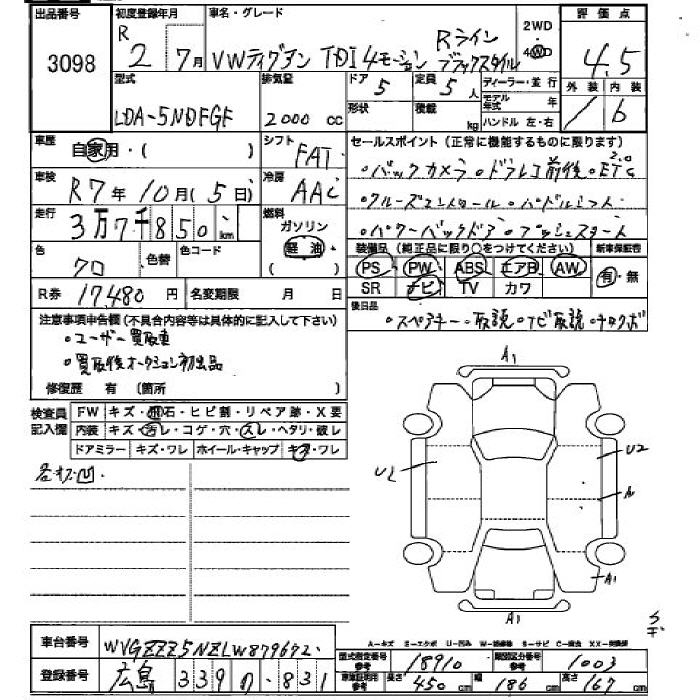 出品番号 初度登録年月 車名・グレード 2WD 評価点
3098 R 2年 7月 VWティグアン TDI 4モーション Rライン ブラックスタイル 4WD 4.5
型式 排気量 ドア 定員 ディーラー・並行 外装 内装
LDA-5NDFGF 2000 cc 5 5人 モデル年式 年 / 6
形状 積載 kg ハンドル 左・右
車歴 自家用・( ) シフト FAT セールスポイント(正常に機能するものに限ります)
車検 R7年10月(5日) 冷房 AAC ・バックカメラ ・ドラレコ前後 ・ETC2.0
走行 3万7千850 km 燃料 ガソリン ・クルーズコントロール ・パドルシフト
軽油 ( ) ・パワーバックドア ・プッシュスタート
色 クロ 色替 色コード 装備品(純正品に限り○をつけてください) 新車保証書
PS PW ABS エアB AW 有・無
SR ナビ TV カワ
R券 17480円 名変期限 月 日 後日品
・スペアキー ・取説 ・ナビ取説
注意事項申告欄(不具合内容等は具体的に記入して下さい)
・ユーザー買取車
・買取後オークション初出品
修復歴 有 (箇所 )
検査員記入欄 FW キズ・飛石・ヒビ割・リペア跡・X要
内装 キズ・汚レ・コゲ・穴・スレ・ヘタリ・破レ
ドアミラー キズ・ワレ ホイール・キャップ キズ・ワレ
各キズ凹
A1
U2
U2
A
A1
A1
車台番号 WVGZZZ5NZLW879672
A-キズ E-エクボ U-凹み W-補修跡 S-サビ C-腐食 XX-交換済
型式指定番号 参考 18910 類別区分番号 参考 1003
登録番号 広島 339 の・831 車庫証明用 参考 長さ 450 cm 幅 186 cm 高さ 167 cm